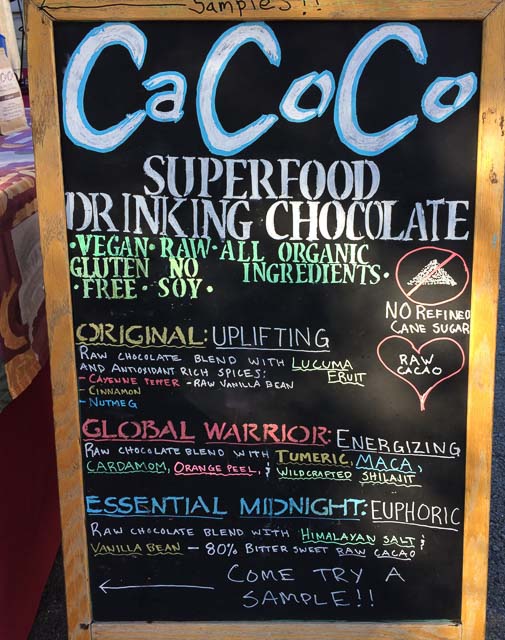 SAMPLES!!
CaCoCo
SUPERFOOD
DRINKING CHOCOLATE
·VEGAN·RAW·ALL ORGANIC
GLUTEN NO INGREDIENTS·
·FREE· SOY·
NO REFINED
CANE SUGAR
ORIGINAL: UPLIFTING
RAW CHOCOLATE BLEND WITH LUCUMA
AND ANTIOXIDANT RICH SPICES: FRUIT
- CAYENNE PEPPER - RAW VANILLA BEAN
- CINNAMON
- NUTMEG
RAW
CACAO
GLOBAL WARRIOR: ENERGIZING
RAW CHOCOLATE BLEND WITH TUMERIC, MACA,
CARDAMOM, ORANGE PEEL, & WILDCRAFTED SHILAJIT
ESSENTIAL MIDNIGHT: EUPHORIC
RAW CHOCOLATE BLEND WITH HIMALAYAN SALT &
VANILLA BEAN - 80% BITTER SWEET RAW CACAO
COME TRY A
SAMPLE!!